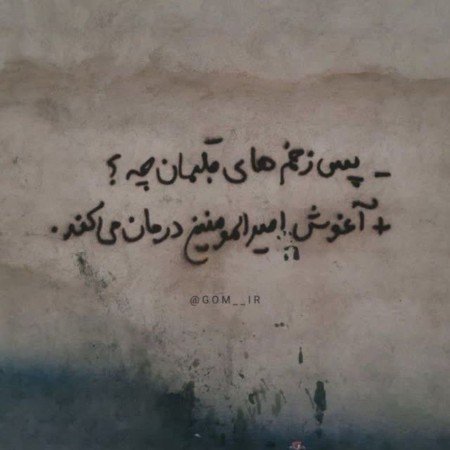 _ پس زخم های قلبمان چه ؟
+ آغوش امیرالمومنین درمان می کند.
@GOM__IR